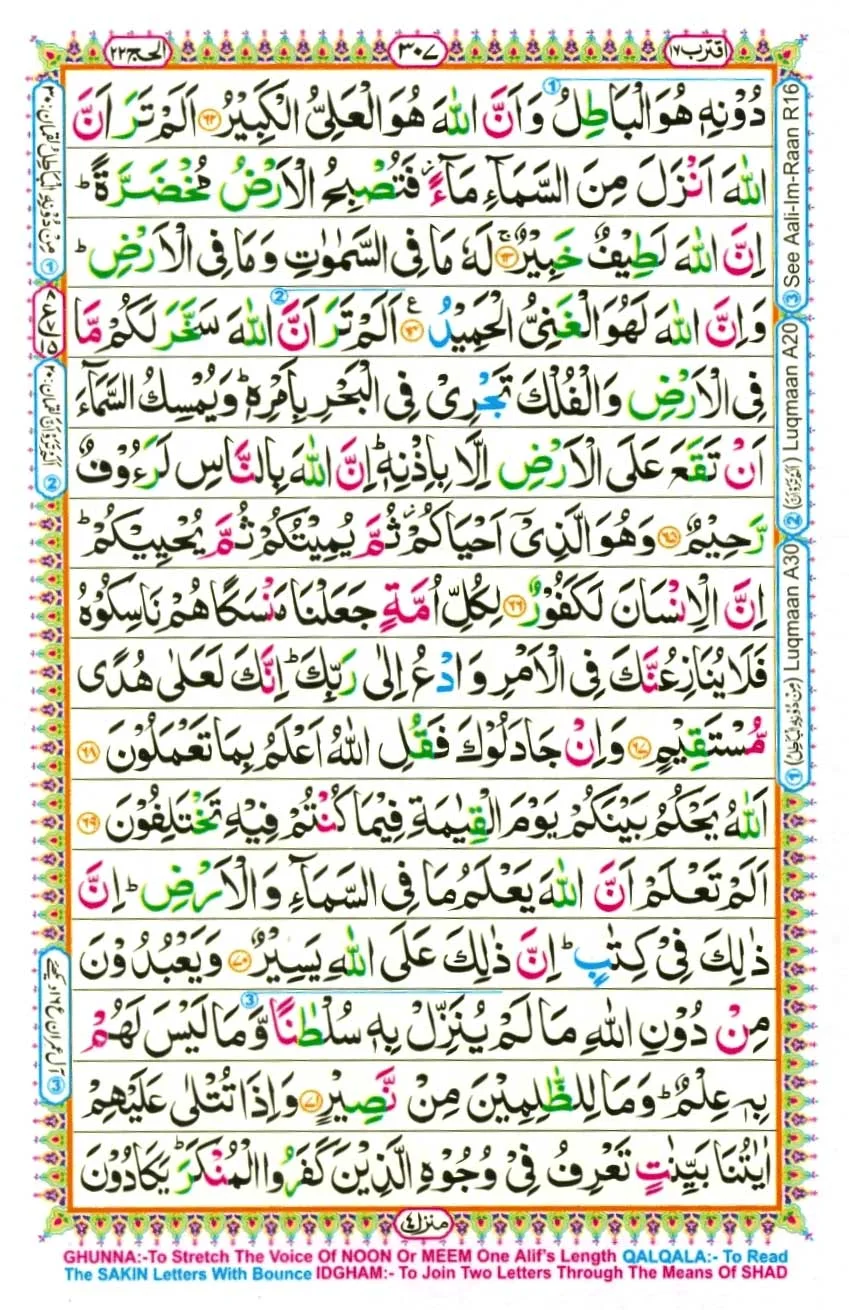 اقترب ١٧
٣٠٧
الحج ٢٢
دُوۡنِهٖ هُوَ الۡبَاطِلُ وَاَنَّ اللّٰهَ هُوَ الۡعَلِىُّ الۡكَبِيۡرُ ﴿۶۲﴾ اَلَمۡ تَرَ اَنَّ
اللّٰهَ اَنۡزَلَ مِنَ السَّمَآءِ مَآءً ؗ فَتُصۡبِحُ الۡاَرۡضُ مُخۡضَرَّةً ؕ
اِنَّ اللّٰهَ لَطِيۡفٌ خَبِيۡرٌ ۚ ﴿۶۳﴾ لَهٗ مَا فِى السَّمٰوٰتِ وَمَا فِى الۡاَرۡضِ ؕ
وَاِنَّ اللّٰهَ لَهُوَ الۡغَنِىُّ الۡحَمِيۡدُ ﴿۶۴﴾ اَلَمۡ تَرَ اَنَّ اللّٰهَ سَخَّرَ لَكُمۡ مَّا
فِى الۡاَرۡضِ وَالۡفُلۡكَ تَجۡرِىۡ فِى الۡبَحۡرِ بِاَمۡرِهٖ ؕ وَيُمۡسِكُ السَّمَآءَ
اَنۡ تَقَعَ عَلَى الۡاَرۡضِ اِلَّا بِاِذۡنِهٖ ؕ اِنَّ اللّٰهَ بِالنَّاسِ لَرَءُوۡفٌ
رَّحِيۡمٌ ﴿۶۵﴾ وَهُوَ الَّذِىۡۤ اَحۡيَاكُمۡ ؗ ثُمَّ يُمِيۡتُكُمۡ ثُمَّ يُحۡيِيۡكُمۡ ؕ
اِنَّ الۡاِنۡسَانَ لَـكَفُوۡرٌ ﴿۶۶﴾ لِكُلِّ اُمَّةٍ جَعَلۡنَا مَنۡسَكًا هُمۡ نَاسِكُوۡهُ
فَلَا يُنَازِعُنَّكَ فِى الۡاَمۡرِ وَادۡعُ اِلٰى رَبِّكَ ؕ اِنَّكَ لَعَلٰى هُدًى
مُّسۡتَقِيۡمٍ ﴿۶۷﴾ وَاِنۡ جَادَلُوۡكَ فَقُلِ اللّٰهُ اَعۡلَمُ بِمَا تَعۡمَلُوۡنَ ﴿۶۸﴾
اَللّٰهُ يَحۡكُمُ بَيۡنَكُمۡ يَوۡمَ الۡقِيٰمَةِ فِيۡمَا كُنۡتُمۡ فِيۡهِ تَخۡتَلِفُوۡنَ ﴿۶۹﴾
اَلَمۡ تَعۡلَمۡ اَنَّ اللّٰهَ يَعۡلَمُ مَا فِى السَّمَآءِ وَالۡاَرۡضِ ؕ اِنَّ
ذٰلِكَ فِىۡ كِتٰبٍ ؕ اِنَّ ذٰلِكَ عَلَى اللّٰهِ يَسِيۡرٌ ﴿۷۰﴾ وَيَعۡبُدُوۡنَ
مِنۡ دُوۡنِ اللّٰهِ مَا لَمۡ يُنَزِّلۡ بِهٖ سُلۡطٰنًا وَّمَا لَـيۡسَ لَهُمۡ
بِهٖ عِلۡمٌ ؕ وَمَا لِلظّٰلِمِيۡنَ مِنۡ نَّصِيۡرٍ ﴿۷۱﴾ وَاِذَا تُتۡلٰى عَلَيۡهِمۡ
اٰيٰتُنَا بَيِّنٰتٍ تَعۡرِفُ فِىۡ وُجُوۡهِ الَّذِيۡنَ كَفَرُوا الۡمُنۡكَرَ ؕ يَكَادُوۡنَ
③ See Aali-Im-Raan R16
② (اَلَمۡ تَرَ اَنَّ) Luqmaan A20
① (مِنۡ دُوۡنِهِ الۡبَاطِلُ) Luqmaan A30
① مِنۡ دُوۡنِهِ الۡبَاطِلُ لقمان: ٣٠
② اَلَمۡ تَرَ اَنَّ لقمان: ٢٠
③ آل عمران ع ١٦ دیکھئے
منزل ٤
GHUNNA:-To Stretch The Voice Of NOON Or MEEM One Alif's Length QALQALA:- To Read
The SAKIN Letters With Bounce IDGHAM:- To Join Two Letters Through The Means Of SHAD